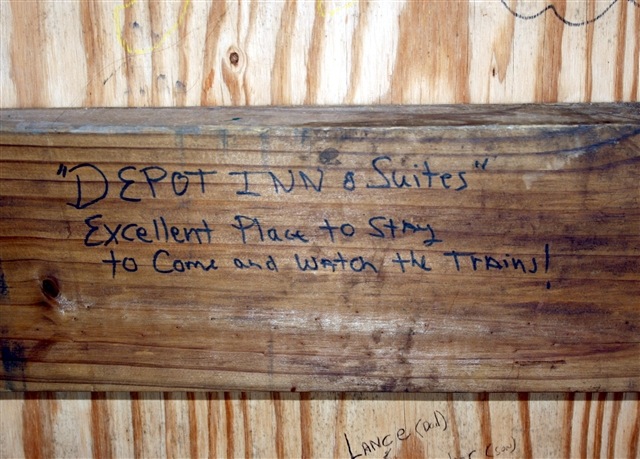 "DEPOT INN & Suites"
Excellent Place to Stay
to Come and Watch the Trains!
LANCE (Dad)
(son)